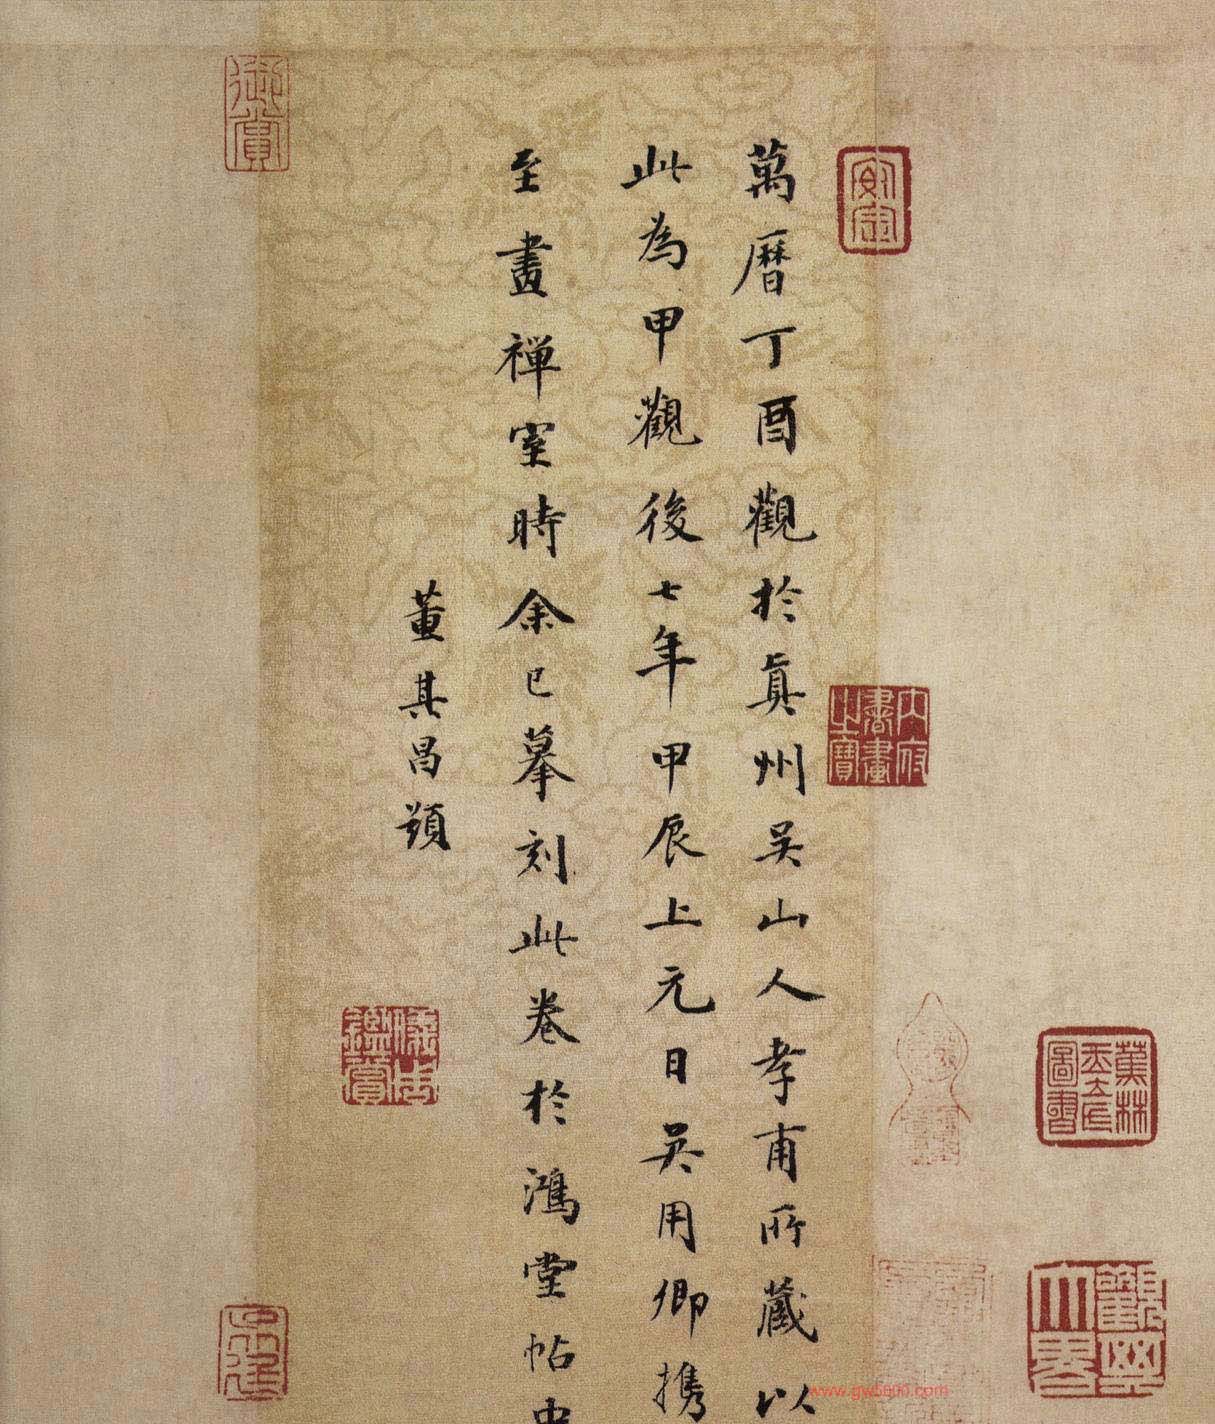 萬曆丁酉觀於真州吴山人孝甫所藏以
此為甲觀後七年甲辰上元日吴用卿攜
至畫禪室時余已摹刻此卷於鴻堂帖中
董其昌題
御賞
內府書畫之寶
蕉林玉立氏圖書
觀其大略
www.gw5000.com